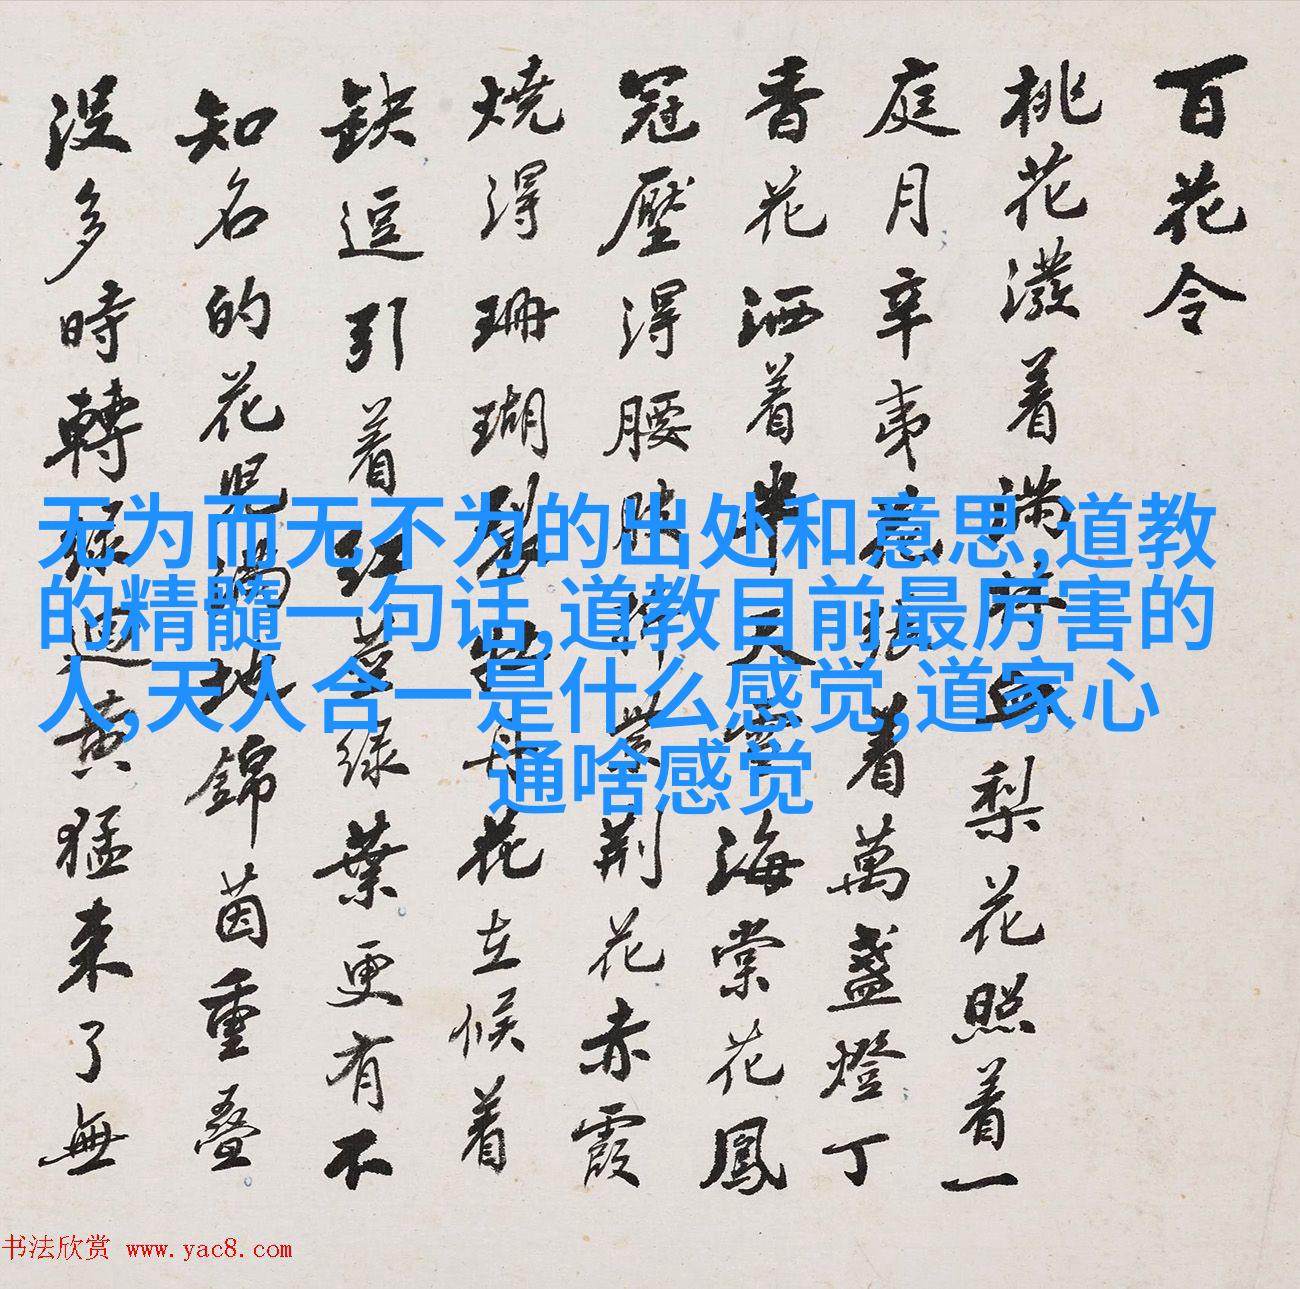 百花令
桃花潑着滿林血梨花照着一
庭月辛夷花着萬盞燈丁
香花洒着半天雪海棠花鳳
冠壓得腰肢紫荆花赤霞
燒得珊瑚裂牡丹花立候着
缺逗引着紅綠葉更有不
知名的花兒滿地錦茵重疊
没多時轉綠迴黄猛来了無
无为而无不为的出处和意思,道教
的精髓一句话,道教目前最厉害的
人,天人合一是什么感觉,道家心
通啥感觉
书法欣赏 www.yac8.com